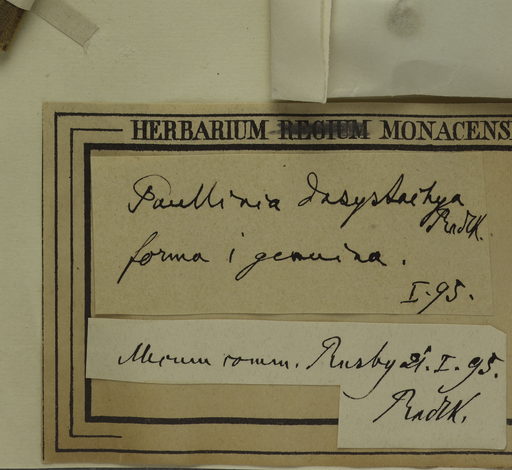 HERBARIUM REGIUM MONACENS
Paullinia dasystachya
Radlk.
forma 1 genuina.
I. 95.
Mecum comm. Rusby 21. I. 95.
Radlk.